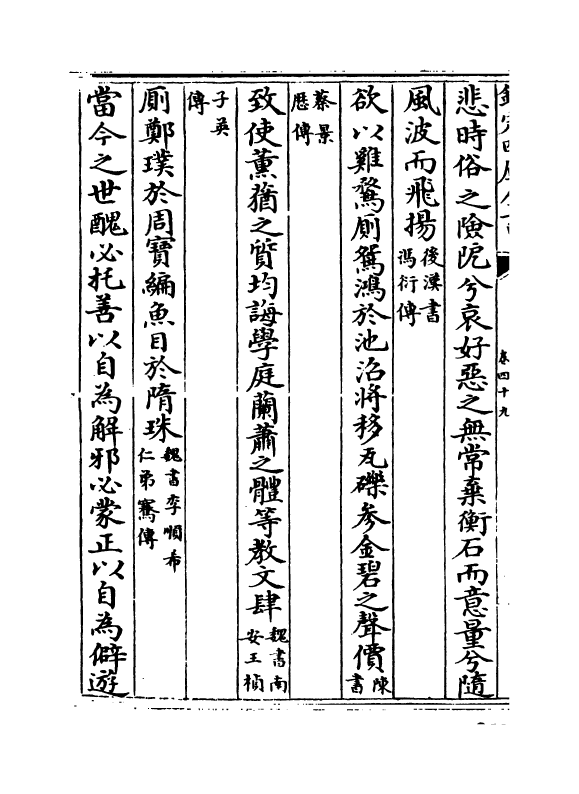 卷四十九
悲時俗之險阨兮哀好惡之無常棄衡石而意量兮隨
風波而飛揚後漢書馮衍傳
欲以雞鶩厠鴛鴻於池沼將移瓦礫參金碧之聲價陳書
蔡景歴傳
致使薰蕕之質均誨學庭蘭蕭之體等教文肆魏書南安王楨
子英傳
厠鄭璞於周寶編魚目於隋珠魏書李順希仁弟騫傳
當今之世醜必托善以自為解邪必蒙正以自為僻遊